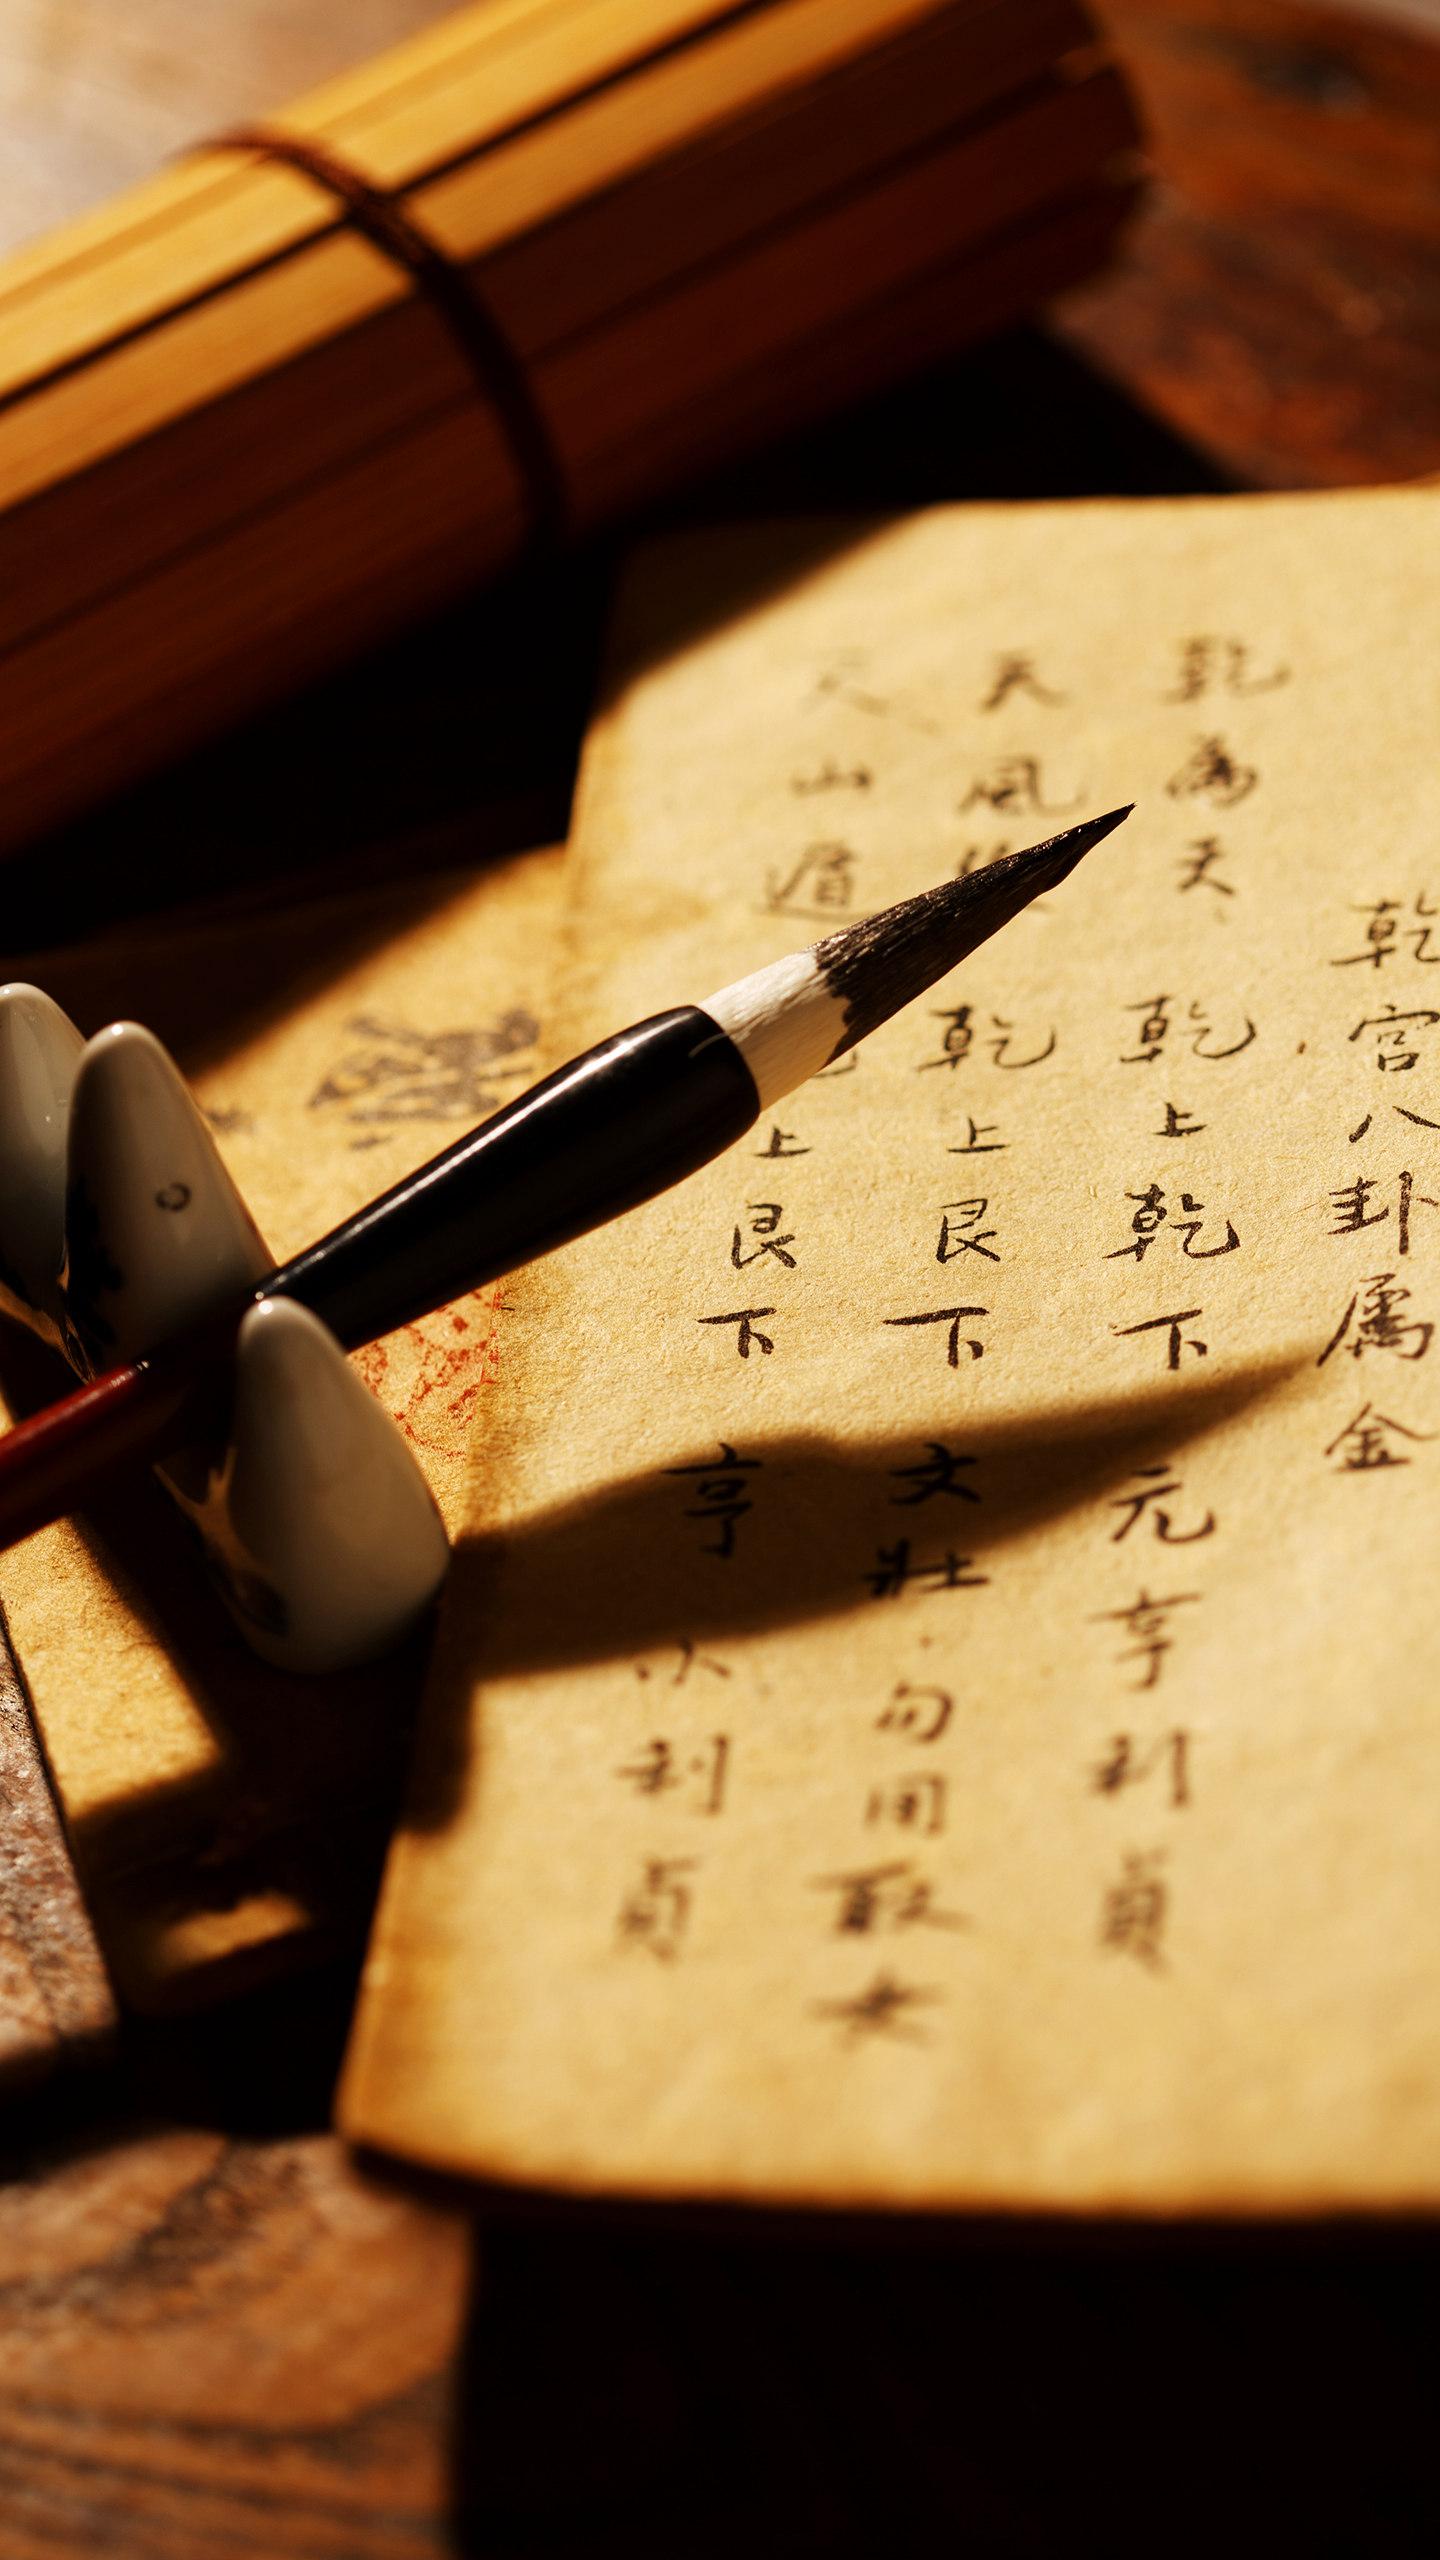 乾宮八卦屬金
乾為天 乾上乾下 元亨利貞
天風 乾上艮下 文壯勿用取女
天山遁 上艮下 亨小利貞